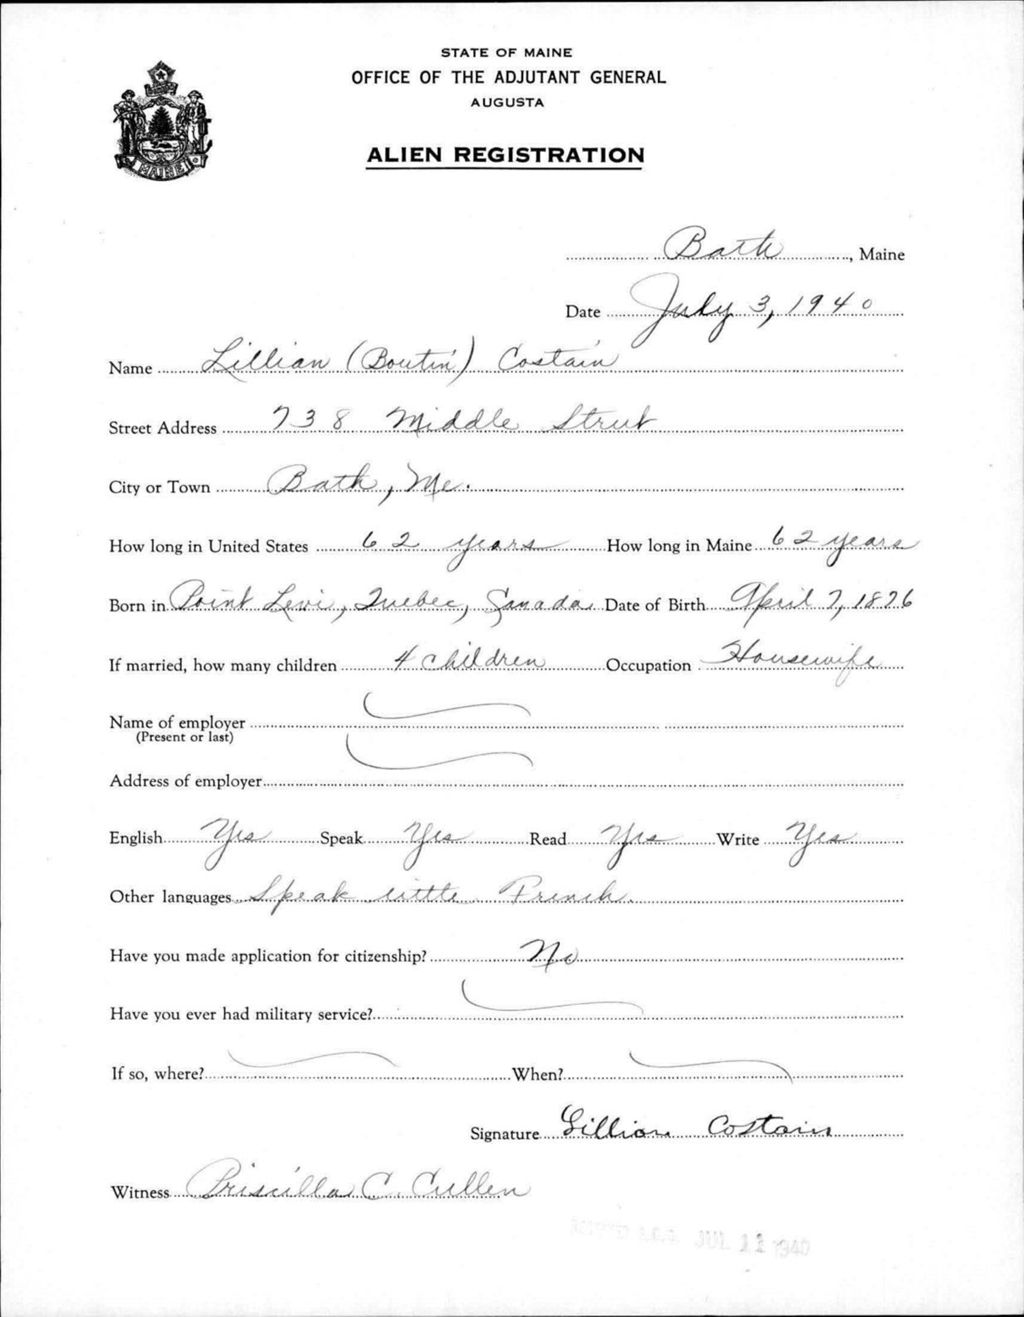 STATE OF MAINE
OFFICE OF THE ADJUTANT GENERAL
AUGUSTA
ALIEN REGISTRATION
MAINE
Bath, Maine
Date July 3, 1940
Name Lillian (Boutin) Costain
Street Address 738 Middle Street
City or Town Bath, Me.
How long in United States 62 years How long in Maine 62 years
Born in Point Levi, Quebec, Canada Date of Birth April 7, 1876
If married, how many children 4 children Occupation Housewife
Name of employer
(Present or last)
Address of employer
English Yes Speak Yes Read Yes Write Yes
Other languages Speak little French.
Have you made application for citizenship? No
Have you ever had military service?
If so, where? When?
Signature Lillian Costain
Witness Priscilla C. Cullen
A.G.O. JUL 11 1940